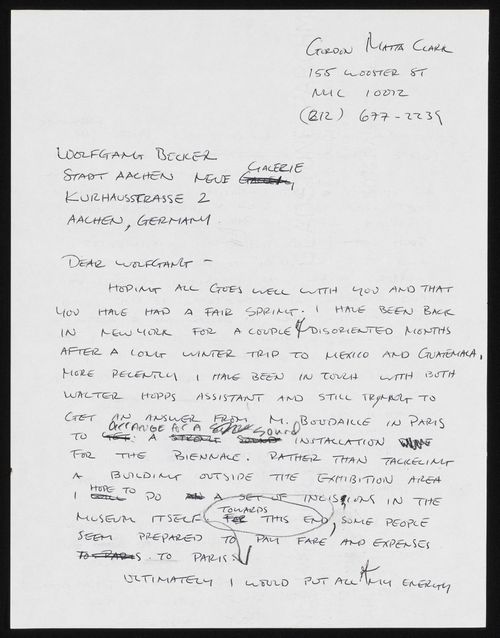 GORDON MATTA CLARK
155 WOOSTER ST
NYC 10012
(212) 677-2239
WOLFGANG BECKER
STADT AACHEN NEUE GALERIE
KURHAUSSTRASSE 2
AACHEN, GERMANY
DEAR WOLFGANG -
HOPING ALL GOES WELL WITH YOU AND THAT
YOU HAVE HAD A FAIR SPRING. I HAVE BEEN BACK
IN NEW YORK FOR A COUPLE OF DISORIENTED MONTHS
AFTER A LONG WINTER TRIP TO MEXICO AND GUATEMALA,
MORE RECENTLY I HAVE BEEN IN TOUCH WITH BOTH
WALTER HOPPS ASSISTANT AND STILL TRYING TO
GET AN ANSWER FROM M. BOUDAILLE IN PARIS
TO ARRANGE FOR A SOUND INSTALLATION
FOR THE BIENNALE. RATHER THAN TACKELING
A BUILDING OUTSIDE THE EXHIBITION AREA
I HOPE TO DO A SET OF INCISIONS IN THE
MUSEUM ITSELF. TOWARDS THIS END, SOME PEOPLE
SEEM PREPARED TO PAY FARE AND EXPENSES
TO PARIS.
ULTIMATELY I WOULD PUT ALL MY ENERGY